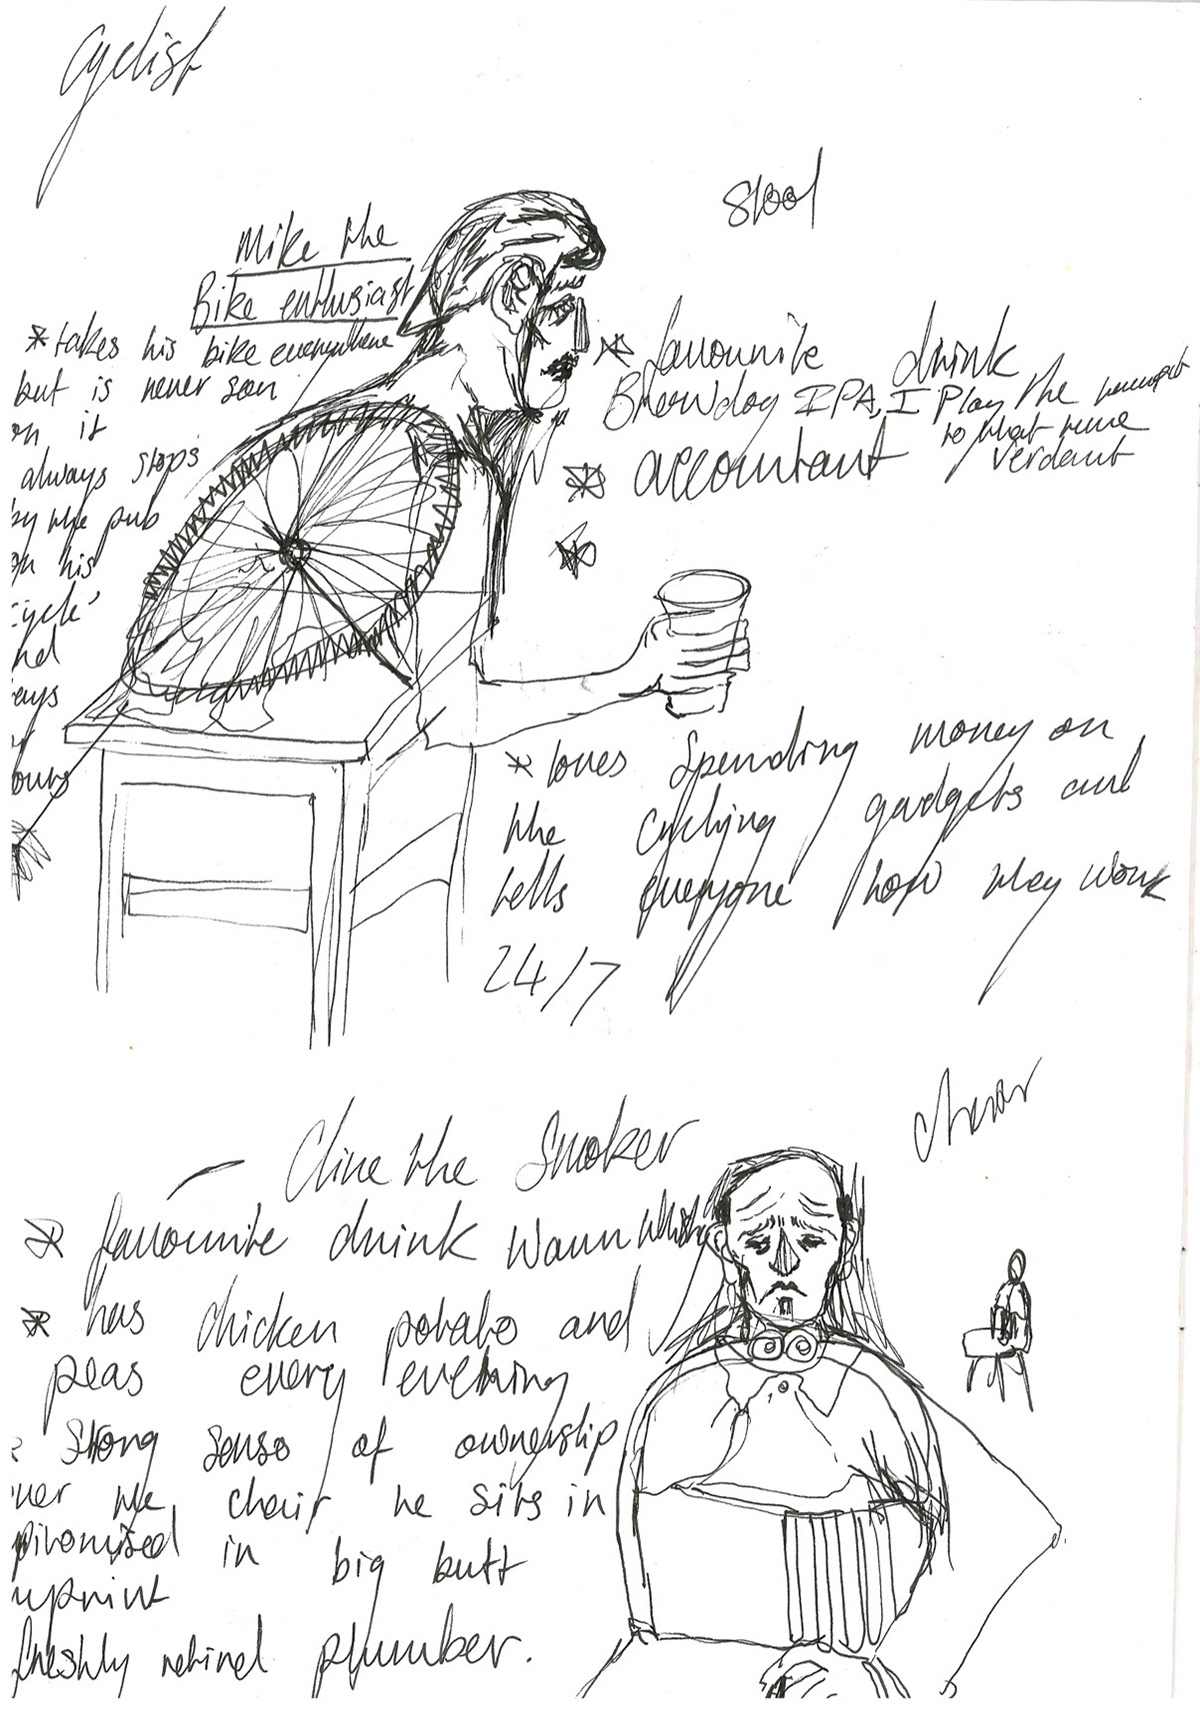 Cyclist
Stool
Mike the
Bike enthusiast
*takes his bike everywhere
but is never seen
on it
always stops
by the pub
on his
cycle'
* favourite drink
Brewdog IPA, I Play the
to what
verdant
* accountant
*
* loves spending money on
the cycling gadgets and
tells everyone how they work
24/7
– Clive the Smoker
* favourite drink warm
* has chicken potato and
peas every evening
strong sense of ownership
over the chair he sits in
in big butt
freshly retired plumber.